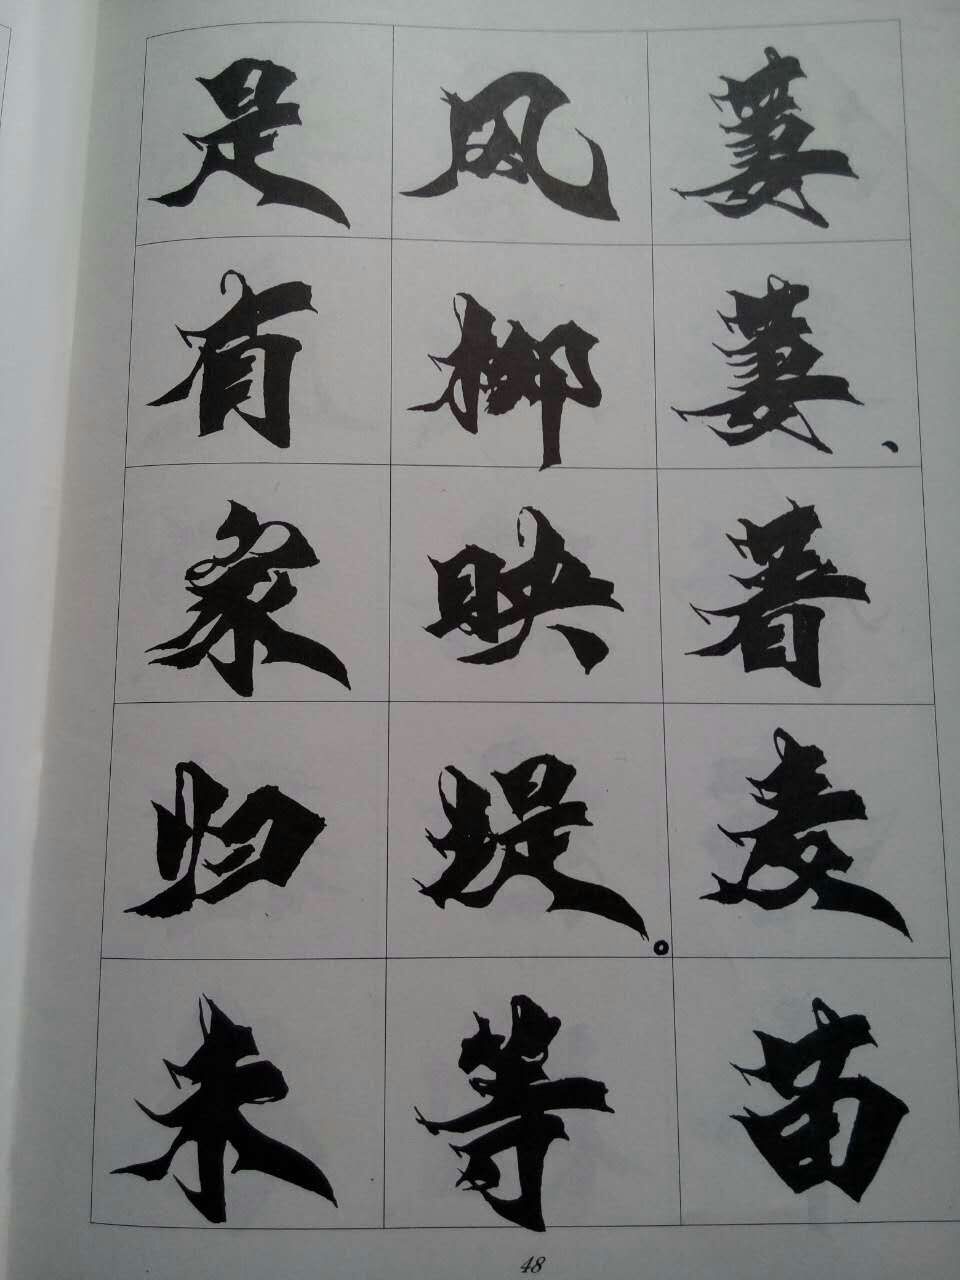 萋萋、著麦苗
风柳映堤。等
是有家归未
48